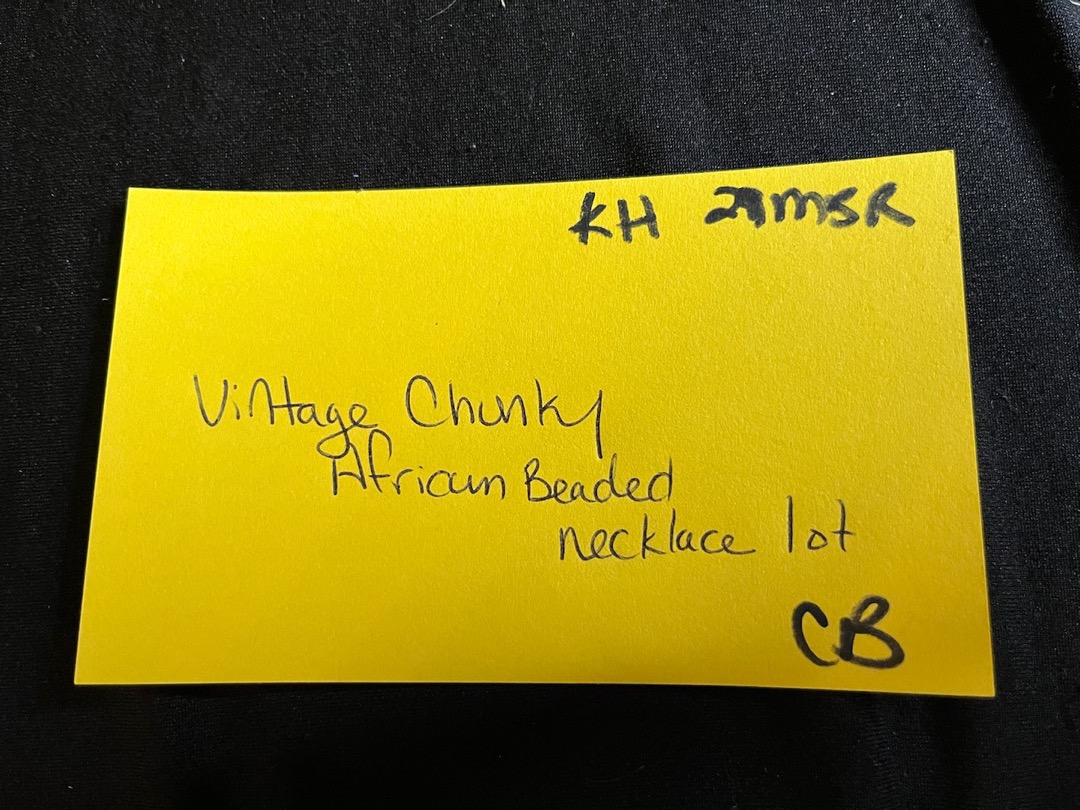 KH 29MSR
Vintage Chunky
African Beaded
necklace lot
CB